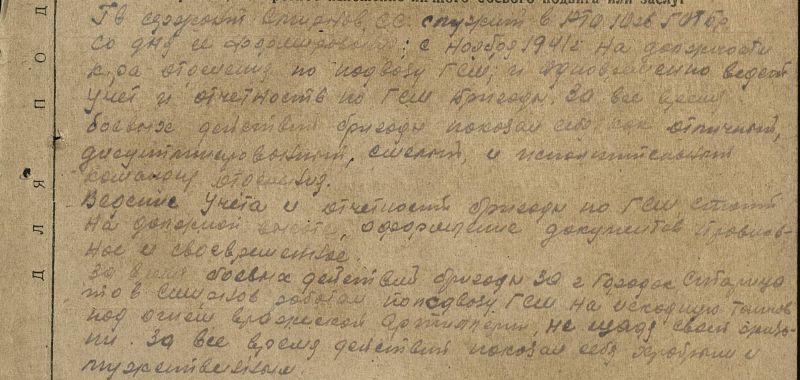 личного боевого подвига или заслуг
Гв сержант С.С. служит в РТО 10гв ГвТбр
со дня ее формирования, с ноября 1941г на должности
к-ра отделения по подвозу ГСМ, и одновременно ведет
учет и отчетность по ГСМ бригады. За все время
боевых действий бригады показал себя как отличный,
дисциплинированный, смелый, и исполнительный
командир отделения.
Ведение учета и отчетности бригады по ГСМ стоит
на должной высоте, оформление документов правиль-
ное и своевременное.
За время боевых действий бригады за г Городок
т-щ работал по подвозу ГСМ на исходную танков
под огнем вражеской артиллерии, не щадя своей жиз-
ни. За все время действий показал себя храбрым и
мужественным.
ДЛЯ ПОД